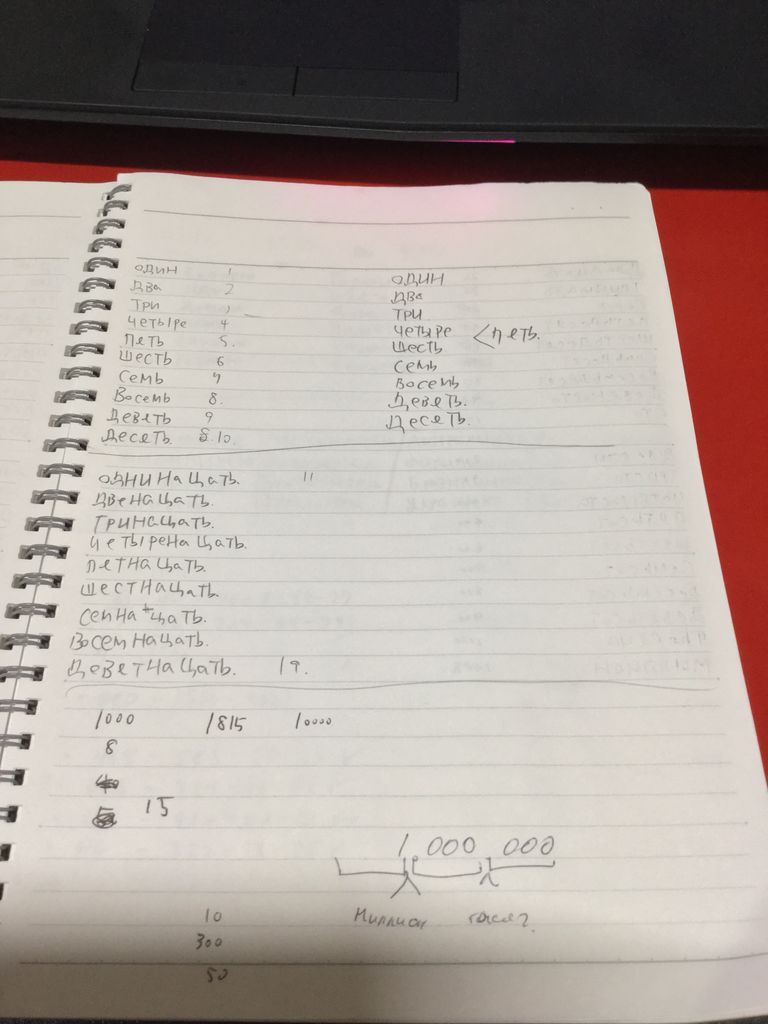 один 1
два 2
три
четыре 4
петь 5.
шесть 6
семь 7
восемь 8.
деветь 9
десеть. 10.
один
два
три
четыре
шесть < петь.
семь
восемь
деветь.
десеть.
однинацать. 11
двенацать.
тринацать.
четыренацать.
петнацать.
шестнацать.
семна+цать.
восемнацать.
деветнацать. 19.
1000 1815 10000
8
15
1.000.000
Миллион
10
300
50